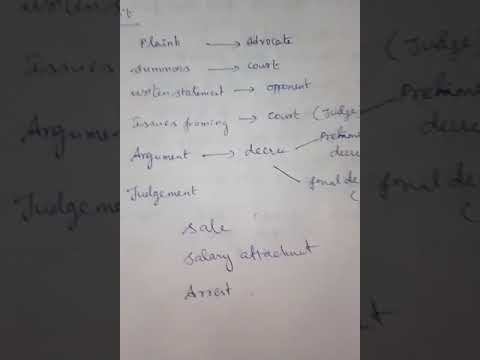 Plaint → Advocate
summons → court
written statement → opponent
Issues framing → court (Judge
Prelimin
Argument → decree
decre
final de
Judgement
Sale
Salary attachment
Arrest